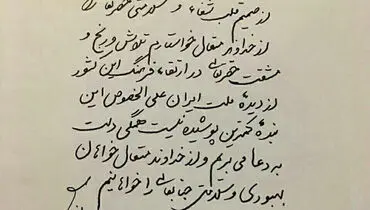 از صمیم قلب شفاء و سلامتی حضرتعالی را
از خداوند متعال خواستارم تلاش و رنج و
مشقت حضرتعالی در ارتقاء فرهنگ این کشور
از دیدهٔ ملت ایران علی الخصوص این
بندهٔ کمترین پوشیده نیست همگی دست
به دعا می بریم و از خداوند متعال خواهان
بهبودی و سلامتی جنابعالی را خواهانیم